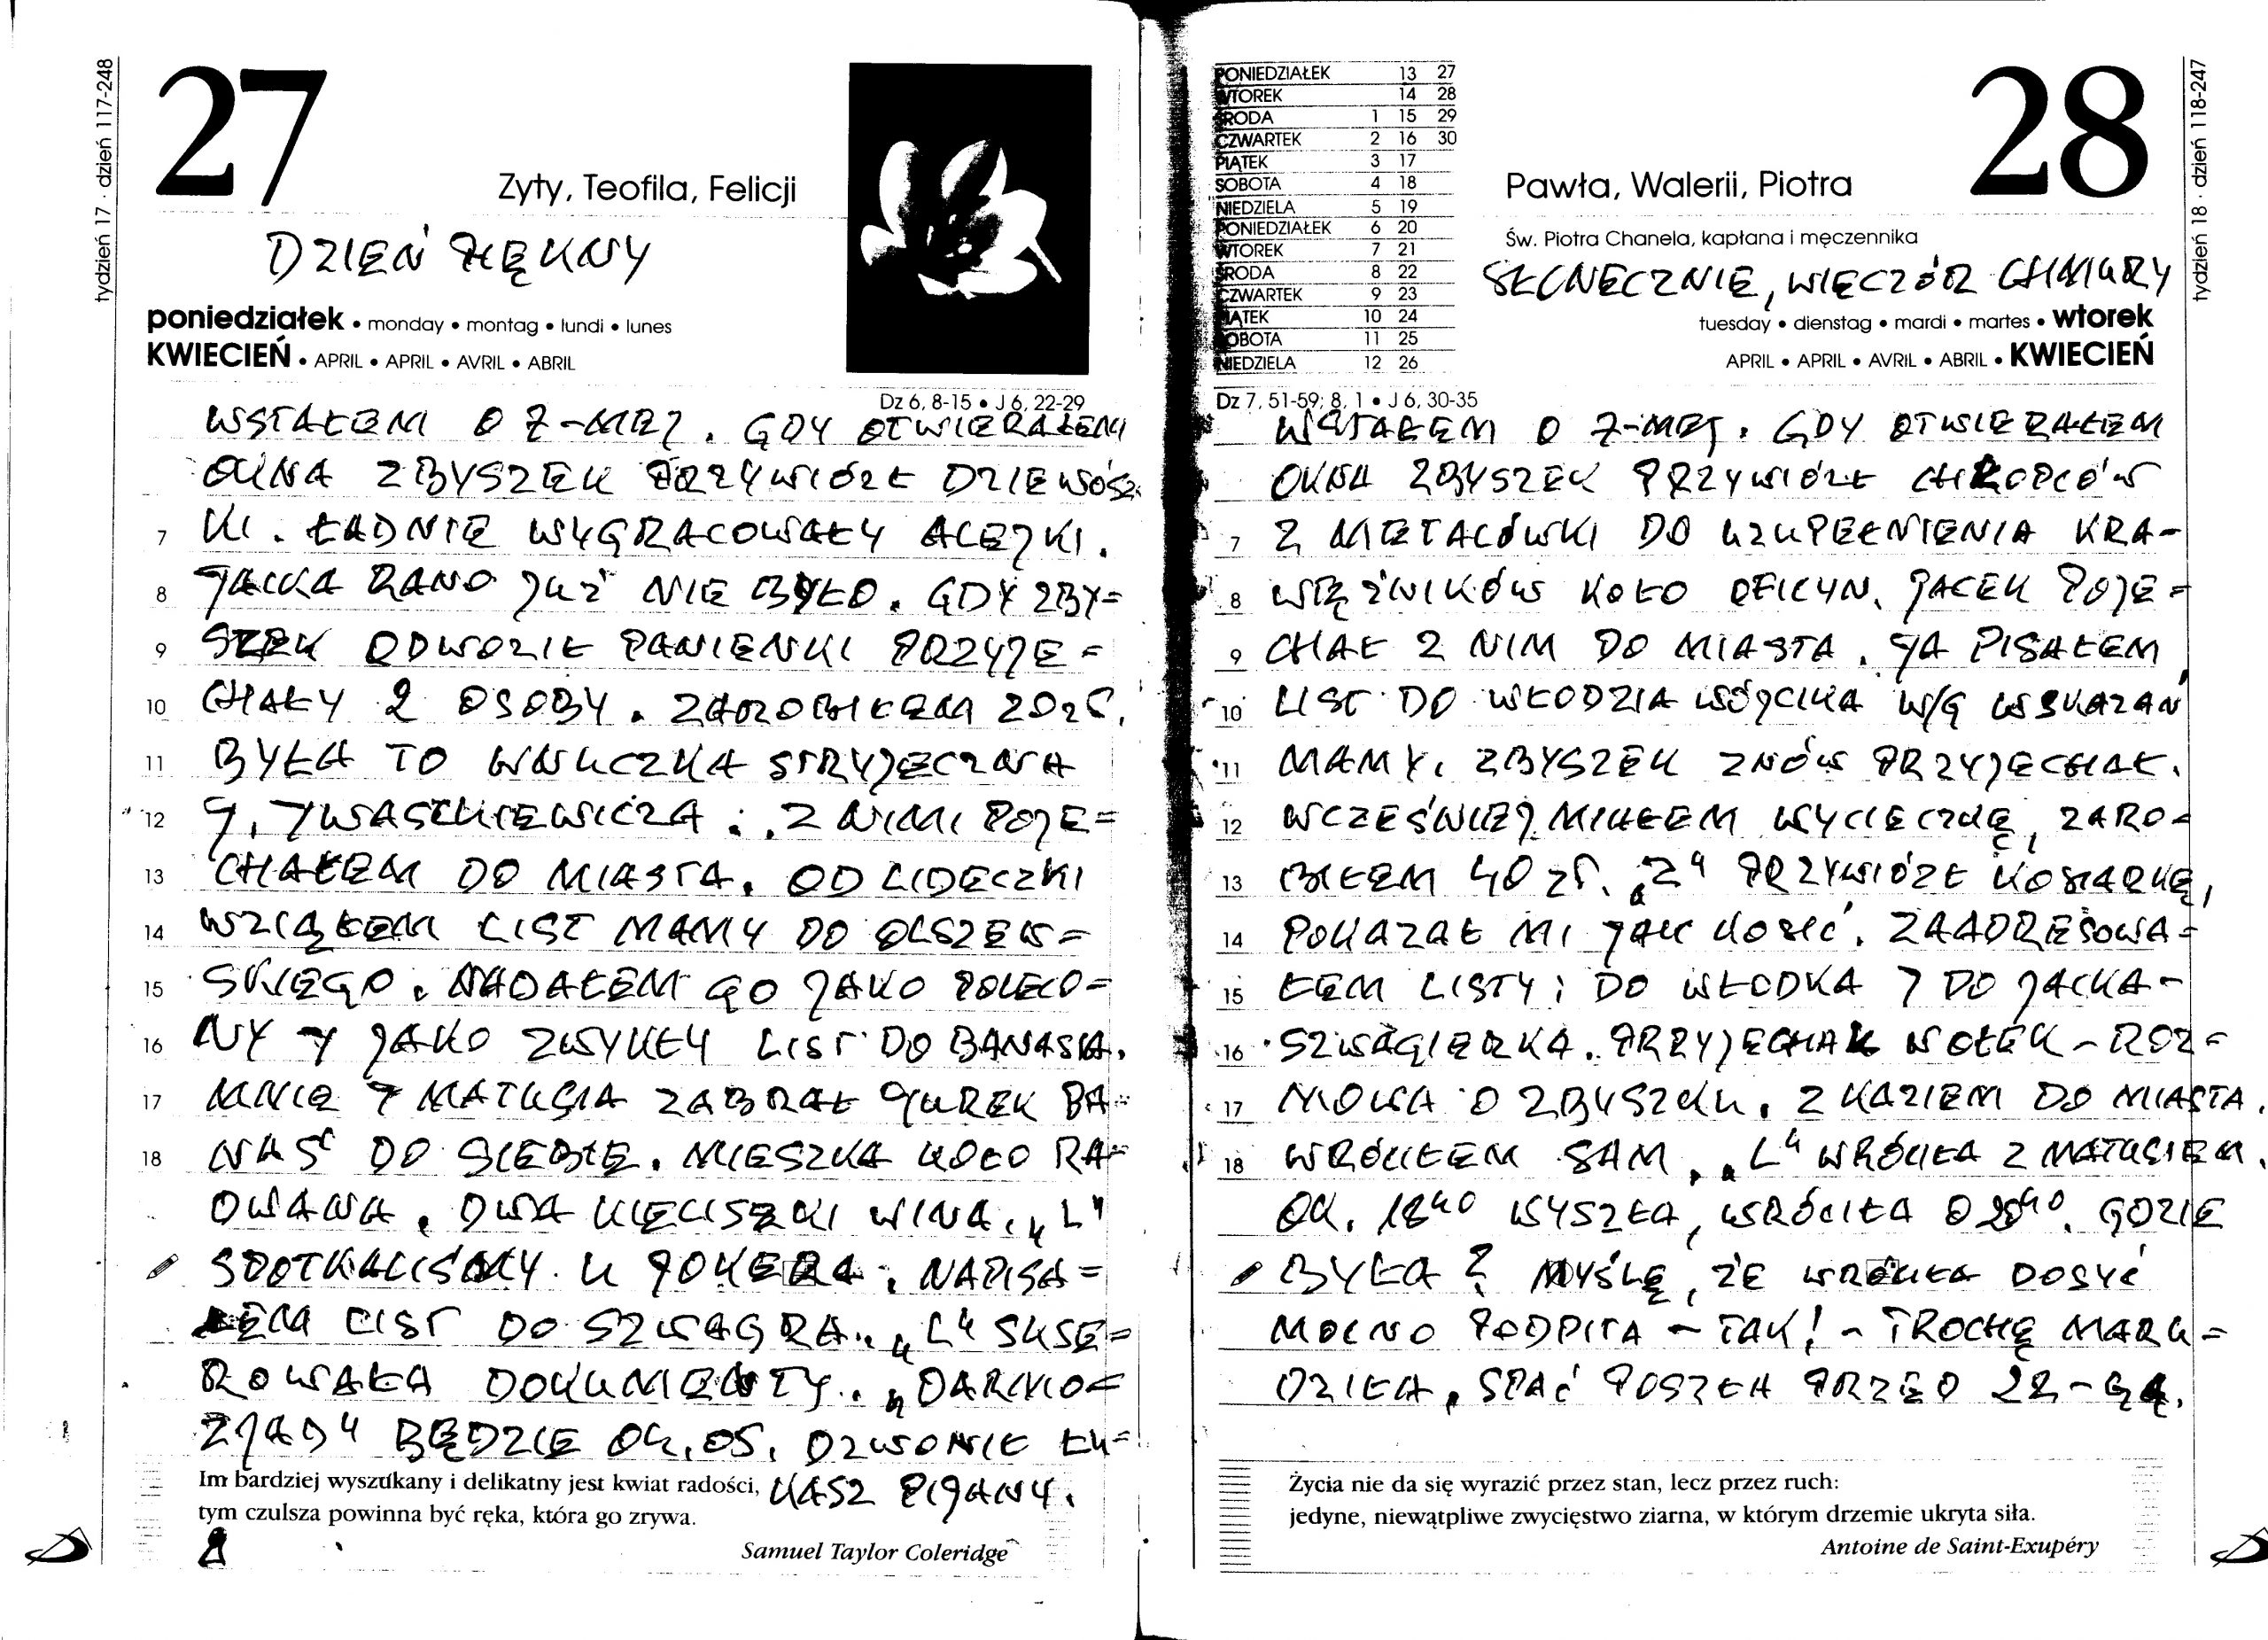 tydzień 17 · dzień 117-248
27
Zyty, Teofila, Felicji
DZIEŃ PIĘKNY
poniedziałek • monday • montag • lundi • lunes
KWIECIEŃ • APRIL • APRIL • AVRIL • ABRIL
Dz 6, 8-15 • J 6, 22-29
WSTAŁEM O 7-MEJ. GDY OTWIERAŁEM
OKNA ZBYSZEK PRZYWIÓZŁ DZIEWÓSZ
7 KI. ŁADNIE WYGRACOWAŁY ALEJKI.
8 JACKA RANO JUŻ NIE BYŁO. GDY ZBY=
9 SZEK ODWOZIŁ PANIENKI PRZYJE=
10 CHAŁY 2 OSOBY. ZAROBIŁEM 20 zł.
11 BYŁA TO WNUCZKA STRYJECZNA
12 J. IWASZKIEWICZA. Z NIMI POJE=
13 CHAŁEM DO MIASTA. OD LIDECZKI
14 WZIĄŁEM LIST MAMY DO OLSZEW=
15 SKIEGO. NADAŁEM GO JAKO POLECO=
16 NY I JAKO ZWYKŁY LIST DO BANASIA.
17 MNIE I MATUSIA ZABRAŁ JUREK BA=
18 NAŚ DO SIEBIE. MIESZKA KOŁO RA=
DWANA. DWA KIELISZKI WINA. „L"
SPOTKALIŚMY U JOKERA. NAPISA=
ŁEM LIST DO SZWAGRA. „L" SKSE=
ROWAŁA DOKUMENTY. „DARMO=
ZJAD" BĘDZIE OK. 05. DZWONIŁ ŁU=
KASZ PIJANY.
Im bardziej wyszukany i delikatny jest kwiat radości,
tym czulsza powinna być ręka, która go zrywa.
Samuel Taylor Coleridge
PONIEDZIAŁEK 13 27
WTOREK 14 28
ŚRODA 1 15 29
CZWARTEK 2 16 30
PIĄTEK 3 17
SOBOTA 4 18
NIEDZIELA 5 19
PONIEDZIAŁEK 6 20
WTOREK 7 21
ŚRODA 8 22
CZWARTEK 9 23
PIĄTEK 10 24
SOBOTA 11 25
NIEDZIELA 12 26
28
tydzień 18 · dzień 118-247
Pawła, Walerii, Piotra
Św. Piotra Chanela, kapłana i męczennika
SŁONECZNIE, WIECZÓR CHMURY
tuesday • dienstag • mardi • martes • wtorek
APRIL • APRIL • AVRIL • ABRIL • KWIECIEŃ
Dz 7, 51-59; 8, 1 • J 6, 30-35
WSTAŁEM O 7-MEJ. GDY OTWIERAŁEM
OKNA ZBYSZEK PRZYWIÓZŁ CHŁOPCÓW
7 Z METALÓWKI DO UZUPEŁNIENIA KRA-
8 WĘŻNIKÓW KOŁO OFICYN. JACEK POJE=
9 CHAŁ Z NIM DO MIASTA. JA PISAŁEM
10 LIST DO WŁODZIA WÓJCIKA W/G WSKAZAŃ
11 MAMY. ZBYSZEK ZNÓW PRZYJECHAŁ.
12 WCZEŚNIEJ MIAŁEM WYCIECZKĘ, ZARO=
13 BIŁEM 40 zł. „Z" PRZYWIÓZŁ KOSIARKĘ,
14 POKAZAŁ MI JAK KOSIĆ. ZAADRESOWA=
15 ŁEM LISTY: DO WŁODKA I DO JACKA-
16 SZWAGIERKA. PRZYJECHAŁ WOŁEK - ROZ=
17 MOWA O ZBYSZKU. Z KAZIEM DO MIASTA.
18 WRÓCIŁEM SAM. „L" WRÓCIŁA Z MATUSIEM.
OK. 18⁴⁰ WYSZŁA, WRÓCIŁA O 20⁴⁰. GDZIE
BYŁA? MYŚLĘ, ŻE WRÓCIŁA DOSYĆ
MOCNO PODPITA - TAK! - TROCHĘ MARU=
DZIŁA. SPAĆ POSZŁA PRZED 22-GĄ.
Życia nie da się wyrazić przez stan, lecz przez ruch:
jedyne, niewątpliwe zwycięstwo ziarna, w którym drzemie ukryta siła.
Antoine de Saint-Exupéry